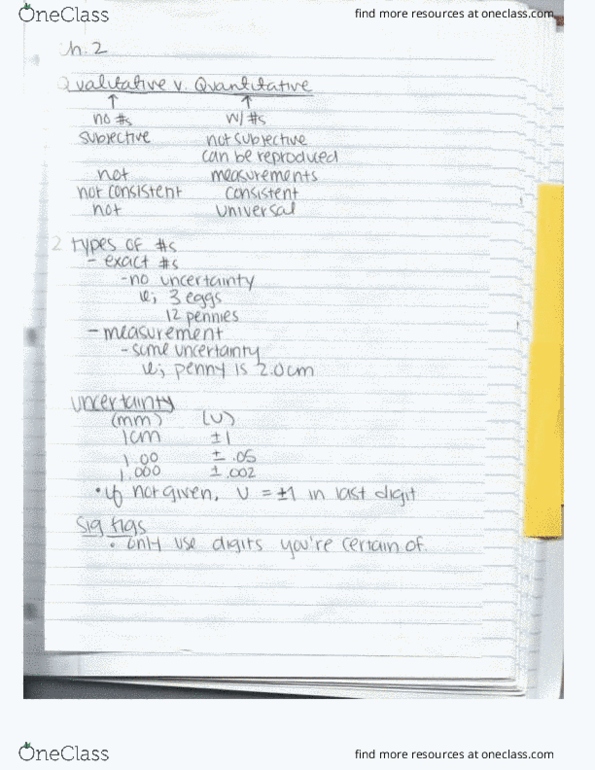 OneClass find more resources at oneclass.com
Ch. 2
Qualitative v. Quantitative
↑ ↑
no #s w/ #s
subjective not subjective
can be reproduced
not measurements
not consistent consistent
not universal
2 types of #s
- exact #s
- no uncertainty
ie; 3 eggs
12 pennies
- measurement
- some uncertainty
ie; penny is 2.0cm
uncertainty
(mm) (U)
1cm ±1
1.00 ± .05
1.000 ± .002
• if not given, U = ±1 in last digit
Sig figs
• only use digits you're certain of.
OneClass find more resources at oneclass.com